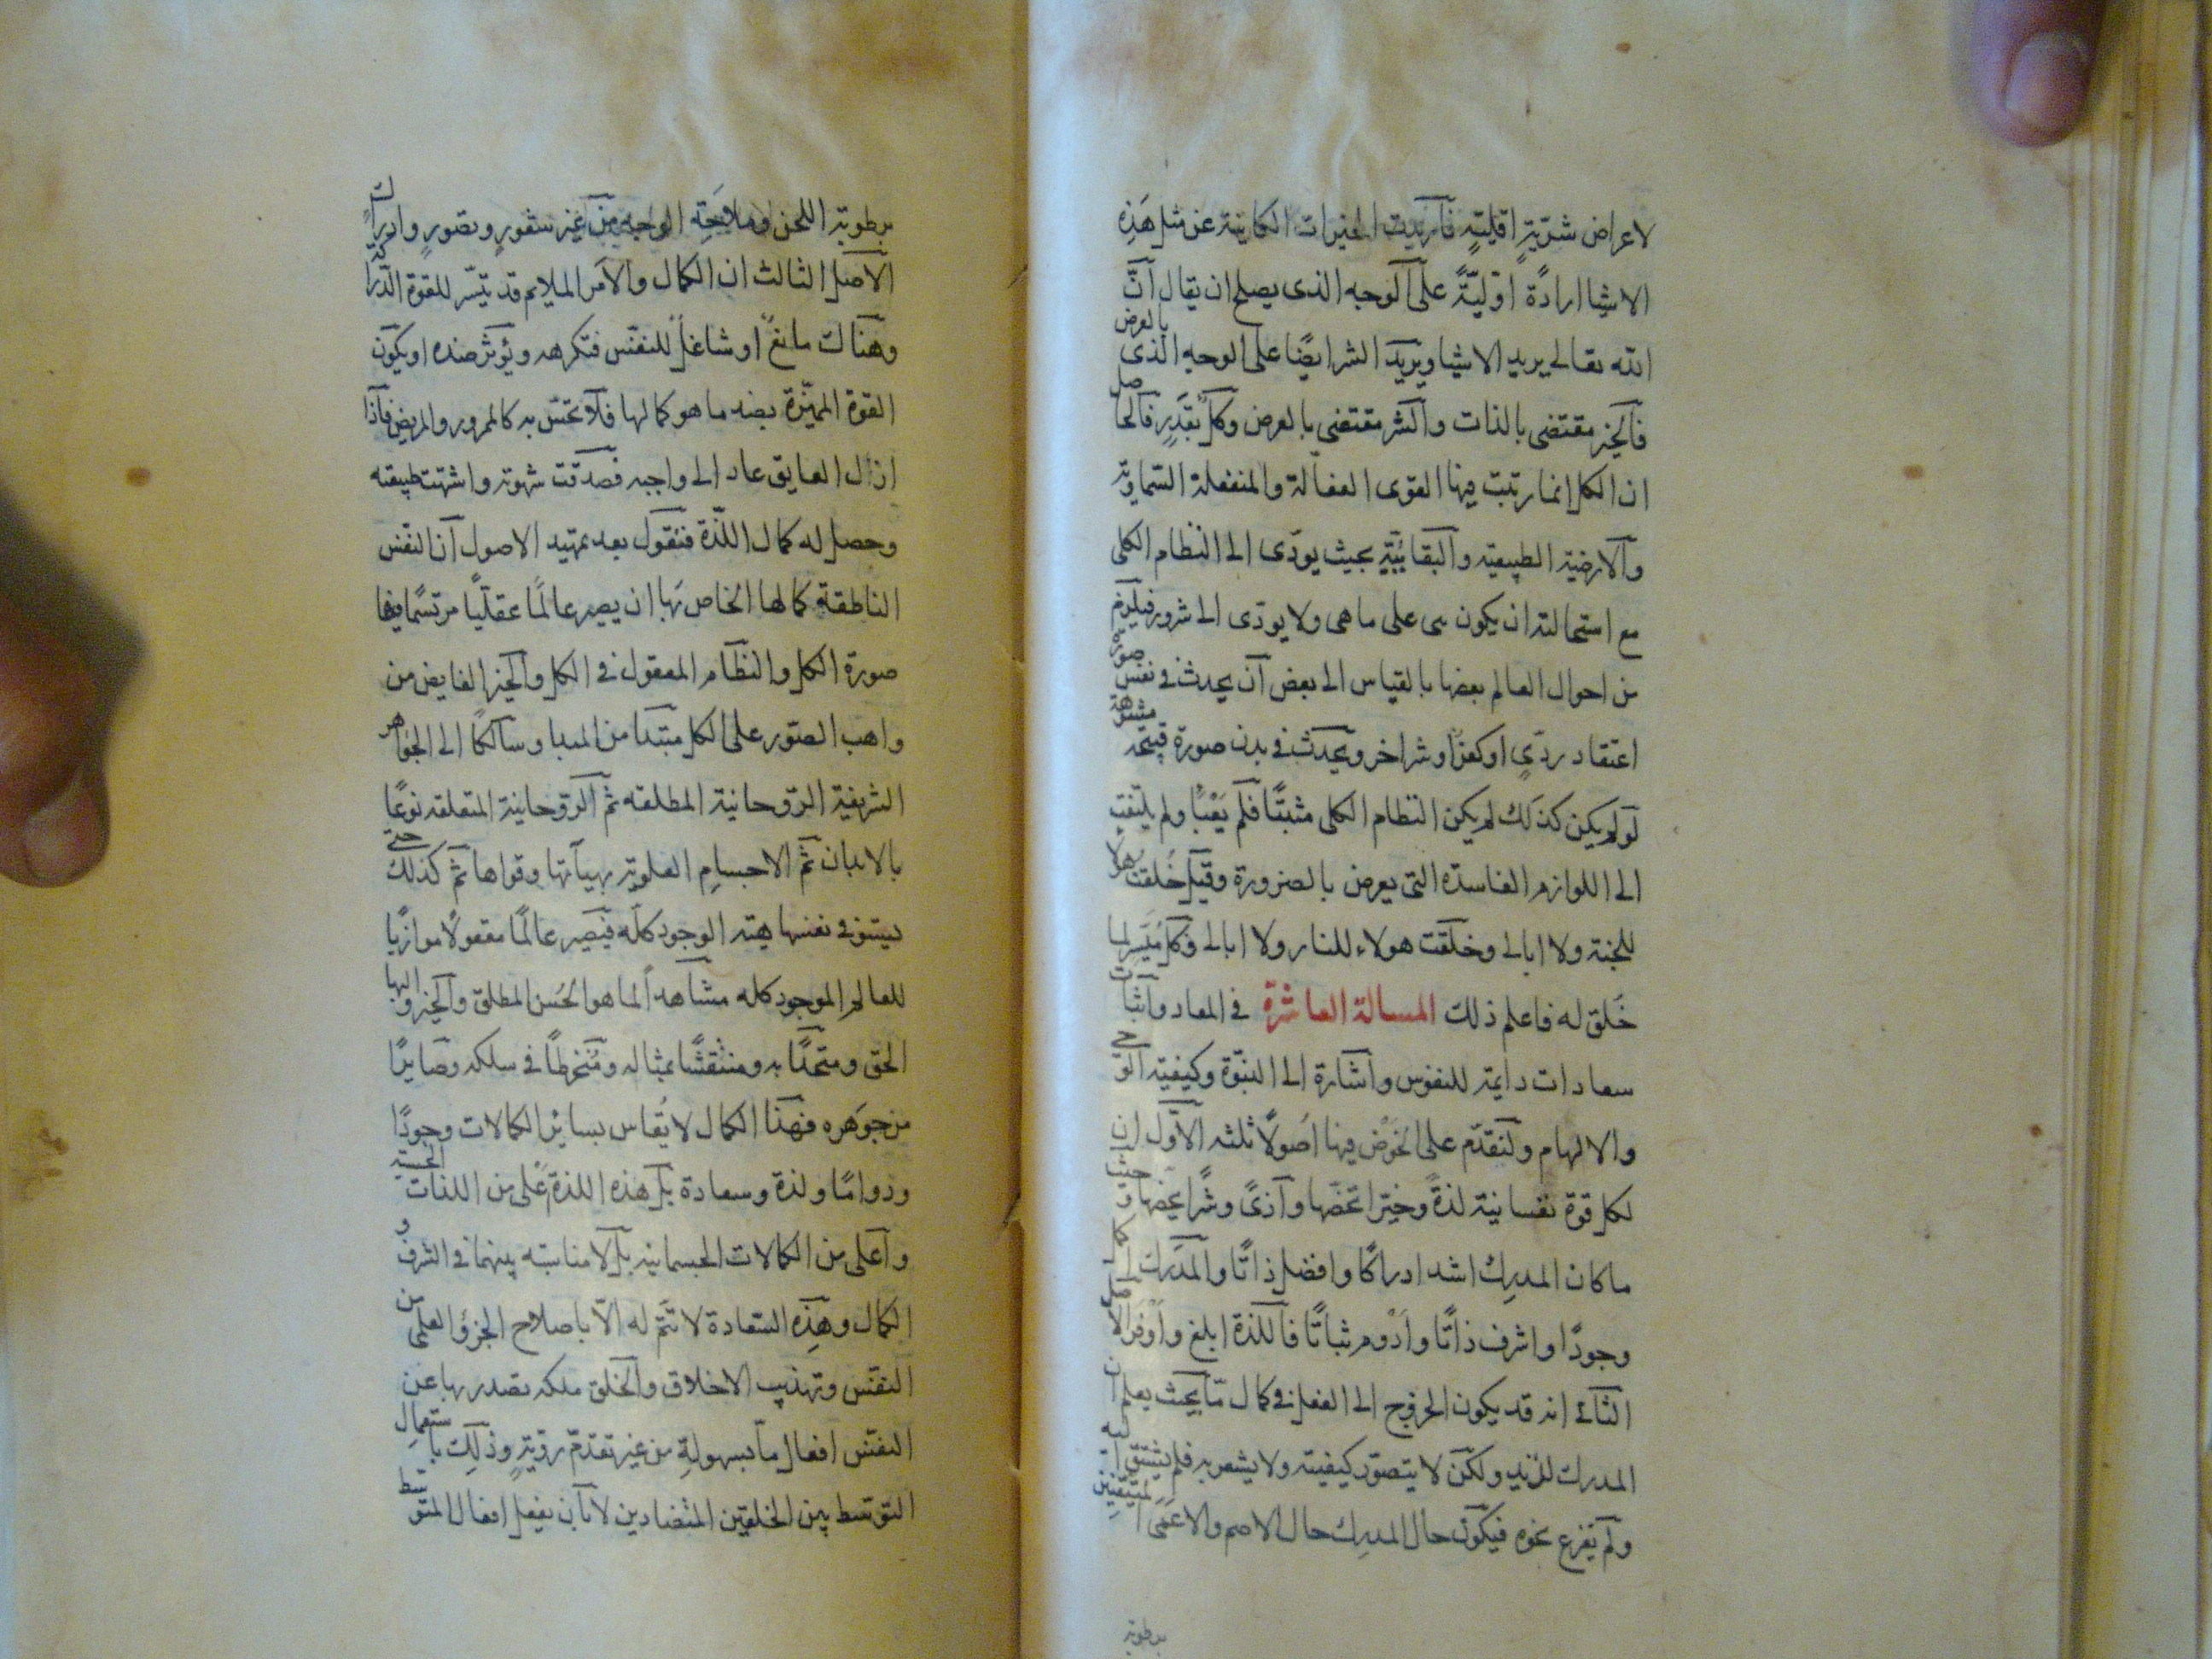 لاعراض شرية اقلية فاريدت الخيرات الكاينة عن مثل هذه
الاشيا ارادة اولية على الوجه الذى يصلح ان يقال ان
الله تعالى يريد الاشيا ويريد الشر ايضا على الوجه الذى بالعرض
فالخير مقتضى بالذات والشر مقتضى بالعرض وكل بقدر فالحاصل
ان الكل انما رتبت فيها القوى الفعالة والمنفعلة السماوية
والارضية الطبيعية والنفسانية بحيث يودى الى النظام الكلى
مع استحالته ان يكون هى على ما هى ولا يودى الى شرور فيلزم
من احوال العالم بعضها بالقياس الى بعض ان يحدث فى نفس صورة
اعتقاد ردى او كفر او شر اخر ويحدث فى بدن صورة قبيحه مشوهة
لو لم يكن كذلك لم يكن النظام الكلى مثبتا فلم يعبا ولم يلتفت
الى اللوازم الفاسدة التى يعرض بالضرورة وقيل خلقت هولا
للجنة ولا ابالى وخلقت هولاء للنار ولا ابالى وكل ميسر لما
خلق له فاعلم ذلك المسالة العاشرة فى المعاد واثبات
سعادات دايمة للنفوس واشارة الى النبوة وكيفية الوحى
والالهام ولنقدم على الخوض فيها اصولا ثلثه الاول ان
لكل قوة نفسانية لذة وخيرا تخصها واذى وشرا يخصها وحيث
ما كان المدرك اشد ادراكا وافضل ذاتا والمدرك اكمل
وجودا واشرف ذاتا وادوم ثباتا فاللذة ابلغ واوفر الاصل
الثانى انه قد يكون الخروج الى الفعل فى كمال ما بحيث يعلم ان
المدرك لذيذ ولكن لا يتصور كيفيته ولا يشعر به فلم يشتق اليه
ولم يفزع نحوه فيكون حال المدرك حال الاصم والاعمى المتيقنين
برطوبة
برطوبة اللحن وملاحة الوجه من غير شعور وتصور وادراك
الاصل الثالث ان الكمال والامر الملايم قد يتيسر للقوة الدراكة
وهناك مانع او شاغل للنفس فتكرهه ويؤثر ضده او يكون
القوة المميزة بضد ما هو كمالها فلا تحس به كالممرور والمريض فاذا
ازال العايق عاد الى واجبه فصدقت شهوته واشتهت طبيعته
وحصل له كمال اللذة فنقول بعد تمهيد الاصول ان النفس
الناطقة كمالها الخاص بها ان يصير عالما عقليا مرتسما فيها
صورة الكل والنظام المعقول فى الكل والخير الفايض من
واهب الصور على الكل مبتدا من المبدا وسالكا الى الجواهر
الشريفة الروحانية المطلقه ثم الروحانية المتعلقه نوعا
بالابدان ثم الاجسام العلوية بهيآتها وقواها ثم كذلك حتى
يستوفى نفسها هيئة الوجود كله فيصير عالما معقولا موازيا
للعالم الموجود كله مشاهدا لما هو الحسن المطلق والخير والبها
الحق ومتحدا به ومنتقشا بمثاله ومنخرطا فى سلكه وصايرا
من جوهره فهذا الكمال لا يقاس بساير الكمالات وجودا
ودواما ولذة وسعادة بل هذه اللذة اعلى من اللذات الحسية
واعلى من الكمالات الجسمانيه بل لا مناسبته بينهما فى الشرف و
الكمال وهذه السعادة لا تتم له الا باصلاح الجزؤ العملى من
النفس وتهذيب الاخلاق والخلق ملكه تصدر بها عن
النفس افعال ما بسهولة من غير تقدم روية وذلك باستعمال
التوسط بين الخلقين المتضادين لا بان يفعل افعال المتوسط